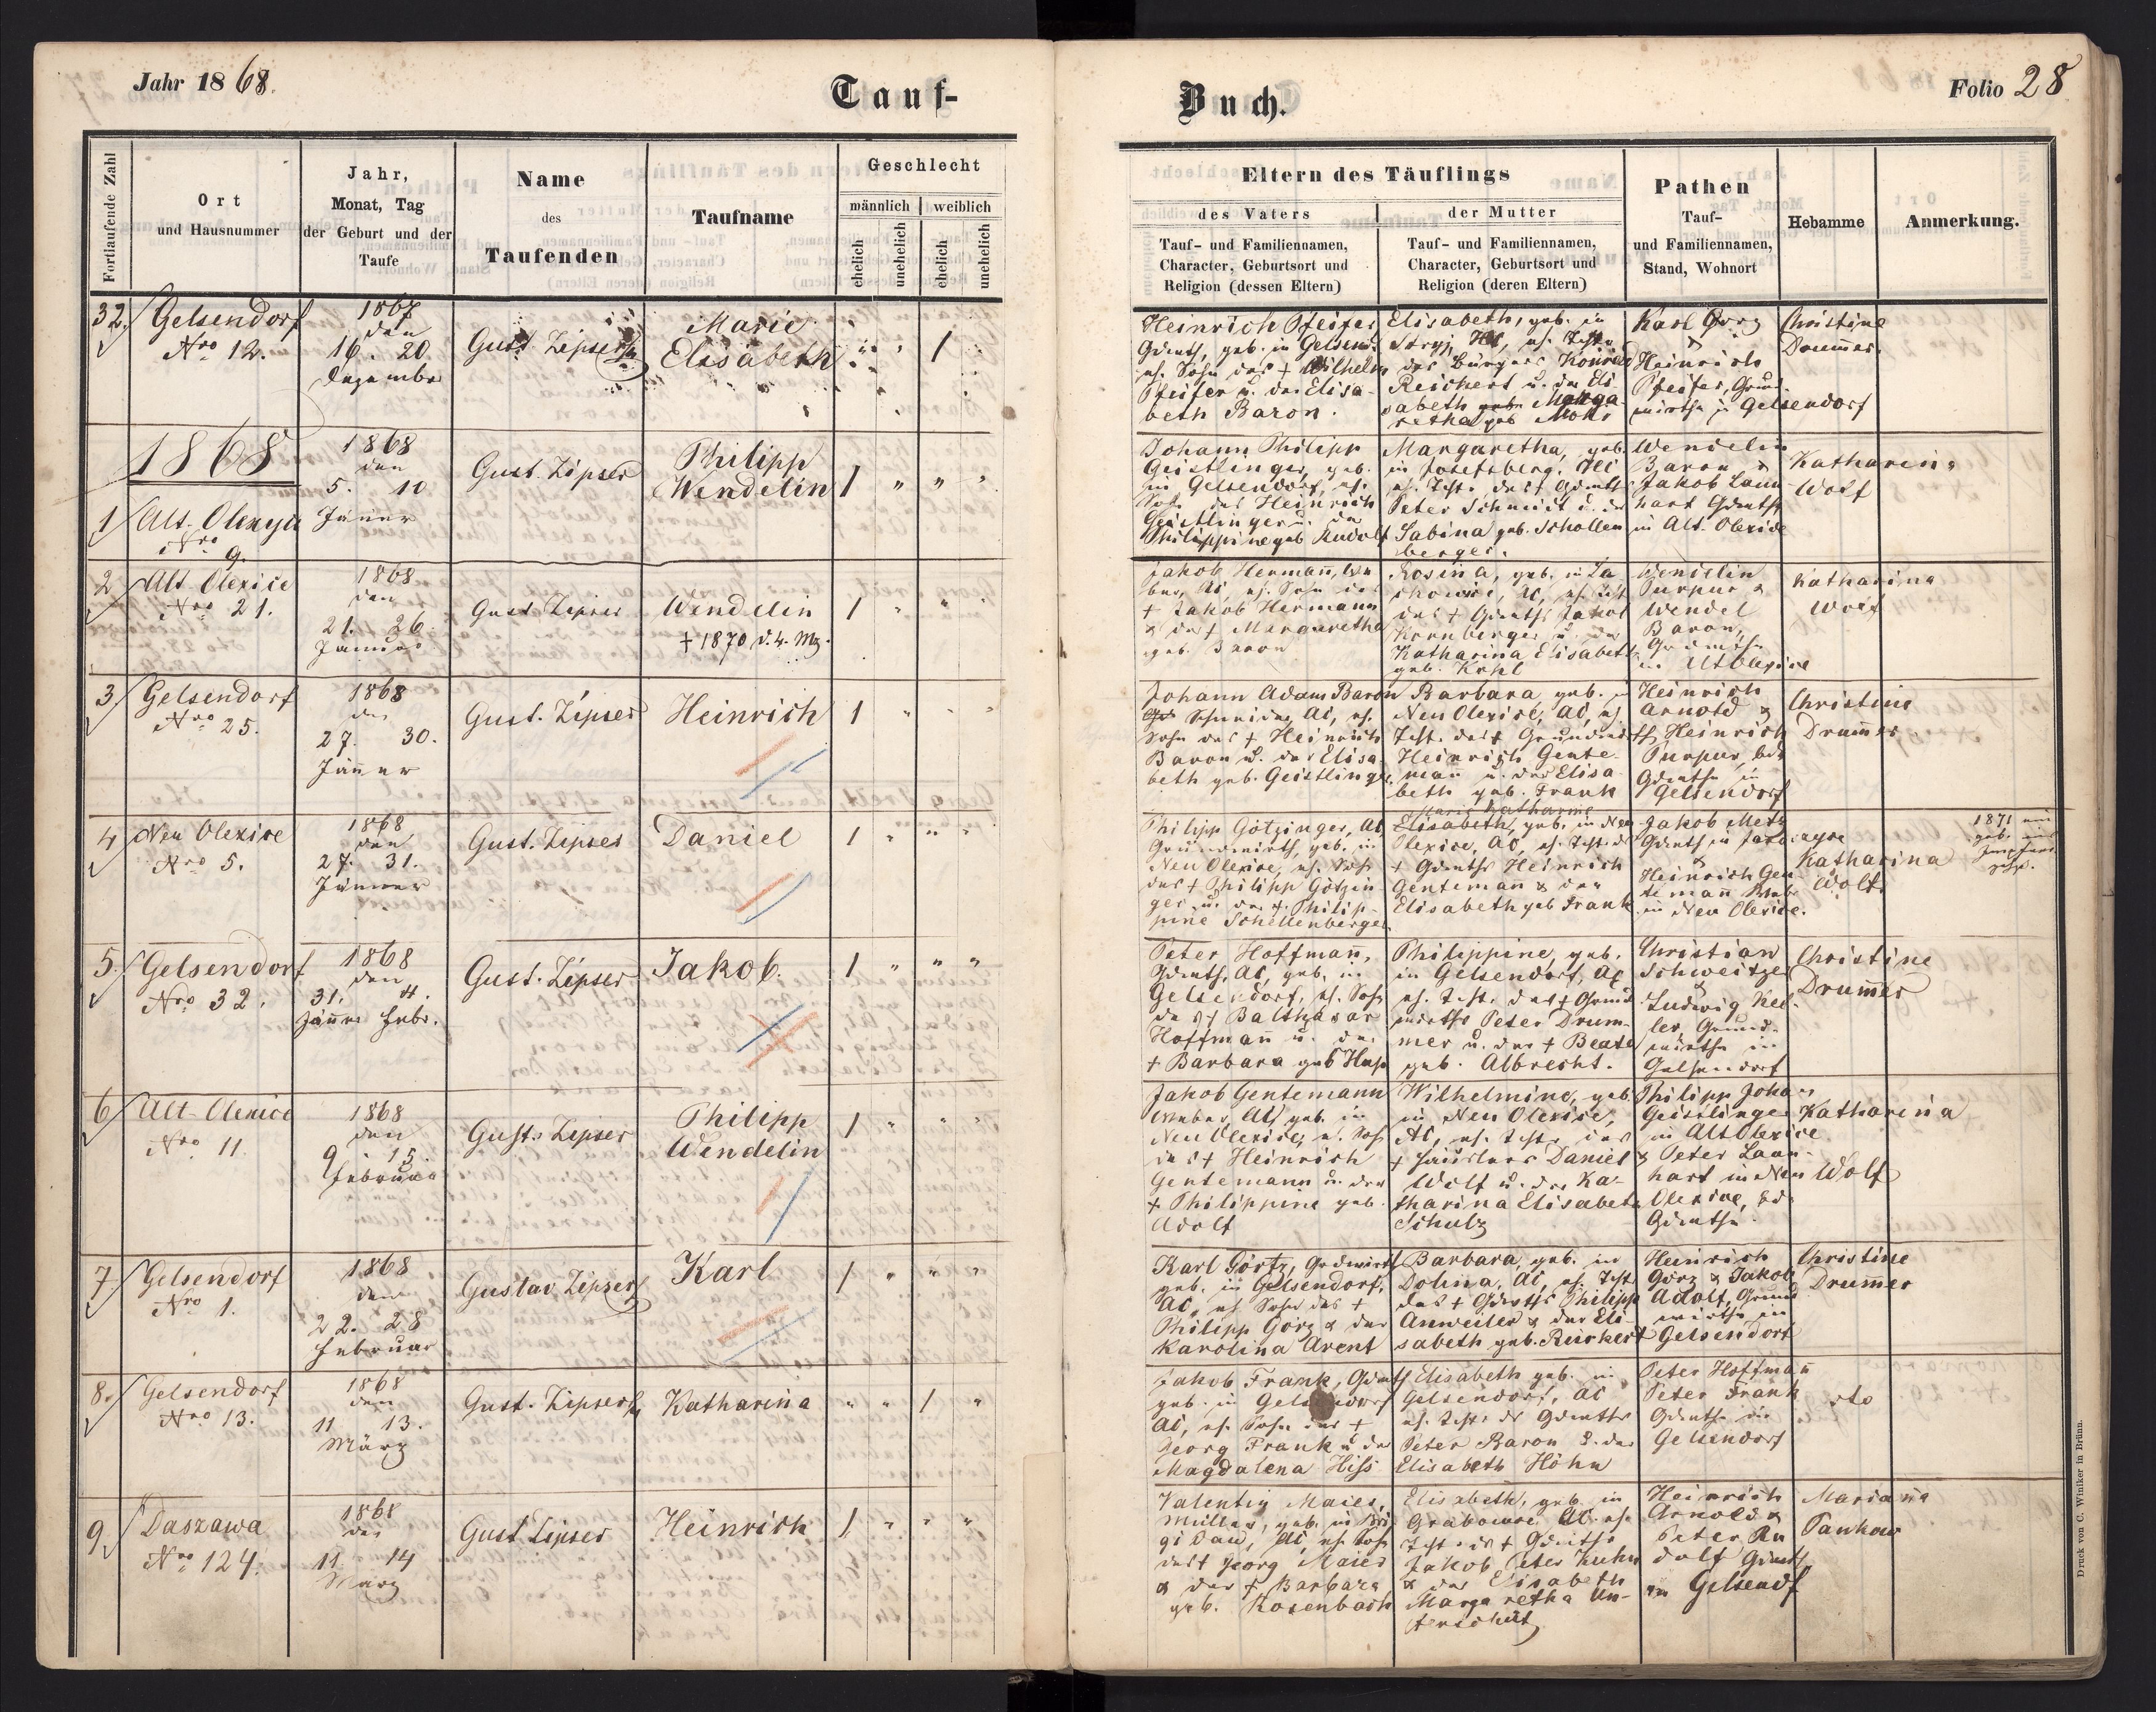 Jahr 1868.
Tauf-
Buch.
Folio 28
Fortlaufende Zahl
Ort
und Hausnummer
Jahr,
Monat, Tag
der Geburt und der
Taufe
Name
des
Taufenden
Taufname
Geschlecht
männlich weiblich
ehelich unehelich ehelich unehelich
Eltern des Täuflings
des Vaters
Tauf- und Familiennamen,
Character, Geburtsort und
Religion (dessen Eltern)
der Mutter
Tauf- und Familiennamen,
Character, Geburtsort und
Religion (deren Eltern)
Pathen
Tauf-
und Familiennamen,
Stand, Wohnort
Hebamme
Anmerkung.
32.
Gelsendorf
Nro 12.
1867
den
16. 20
Dezember
Gust. Zipser
Marie
Elisabeth
" " 1 "
Heinrich Pfeifer
geb. in Gelsend.
eh. Sohn des † Wilhelm
Pfeifer u. der Elisa-
beth Baron.
Elisabeth, geb. in
Stryj, eh. Toht.
des Bürgers Konrad
Reichert u. der Eli-
sabeth Marga
retha geb Mohr
Karl Görz
&
Heinrich
Pfeifer, Grund-
wirthe in Gelsendorf
Christine
Drum̄er.
1868
1
Alt-Olexyce
Nro 9.
1868
den
5. 10
Jänner
Gust. Zipser
Philipp
Wendelin
1 " " "
Johann Philipp
Geistlinger, geb.
in Gelsendorf, eh.
Sohn des Heinrich
Geistlinger u. der
Philippine geb Rudolf
Margaretha, geb.
in Josefsberg, AC
eh. Toht. des †
Peter Schmidt u. der
Sabina geb. Schollen
berger.
Wendelin
Baron &
Jakob Laun
hart
in Alt. Olexice
Katharina
Wolf
2
Alt Olexice
Nro 21.
1868
den
21. 26.
Januar
Gust Zipser
Wendelin
† 1870 d. 4. Mz.
1 " " "
Jakob Hermann, We
ber, AC, eh. Sohn des
† Jakob Hermann
& der † Margaretha
geb. Baron
Rosina, geb. in La
des † Jakob
Kornberger u. der
Katharina Elisabeth
geb. Kohl
Wendelin
Purpur &
Wendel
Baron,
in Alt Olexice
Katharina
Wolf
3.
Gelsendorf
Nro 25.
1868
den
27. 30.
Jänner
Gust. Zipser
Heinrich
1 " " "
Johann Adam Baron
Schneider, AC, eh.
Sohn des † Heinrich
Baron u. der Elisa-
beth geb. Geistlinger.
Barbara geb. in
Neu Olexice, AC, eh
Toht. des † Grundwirths
Heinrich Gente-
mann u. der Elisa
beth geb. Frank
Heinrich
Arnold &
Heinrich
Purpur, bde
in
Gelsendorf
Christine
Drum̄er
4
Neu Olexice
Nro 5.
1868
den
27. 31.
Jänner
Gust. Zipser
Daniel
1 " " "
Philipp Götzinger, AC
Grundwirth, geb. in
Neu Olexice, eh. Sohn
des † Philipp Götzin
ger u. der †. Philip-
pine Schellenberger
Marie Katharine
Elisabeth, geb. in Neu
Olexice, AC, eh. Toht. d.
† Heinrich
Gentemann & der
Elisabeth geb Frank
Jakob Metz
&
Heinrich Gen
temann
in Neu Olexice.
Katharina
Wolf
1871
geb.
5.
Gelsendorf
Nro 32.
1868
den
31. 4.
Jänner Febr.
Gust. Zipser
Jakob.
1 " " "
Peter Hoffmann̄,
AC, geb. in
Gelsendorf, eh. Sohn
des † Balthasar
Hoffmann̄ u. der
† Barbara geb
Philippine, geb.
in Gelsendorf, AC
eh. Toht. des † Grund
wirths Peter Drum-
mer u. der † Beate
geb. Albrecht.
Christian
Schweitzer
&
Ludwig Kel-
ler, Grund-
wirthe in
Gelsendorf
Christine
Drum̄er
6
Alt-Olexice
Nro 11.
1868
den
9. 15.
Februar
Gust. Zipser
Philipp
Wendelin
1 " " "
Jakob Gentemann
Weber, AC, geb. in
Neu Olexice, eh. Sohn
des † Heinrich
Gentemann u. der
† Philippine geb.
Adolf
Wilhelmine, geb.
in Neu Olexice,
AC, eh. Toht. des
† Häuslers Daniel
Wolf u. der Ka-
tharina Elisabeta
Schulz
Philipp Johan
Geistlinger
in Alt Olexice
& Peter Laun-
hart in Neu
Olexice, bde
Katharina
Wolf
7
Gelsendorf
Nro 1.
1868
den
22. 28
Februar
Gustav Zipser
Karl
1 " " "
Karl Görtz, Grdwirth
geb. in Gelsendorf,
AC, eh Sohn des †
Philipp Görz & der
Karolina Arent
Barbara, geb. in
Dolina, AC, eh. Toht
des † Philipp
Anweiler & der Eli-
sabeth geb. Reichert
Heinrich
Görz & Jakob
Adolf, Grund
wirthe in
Gelsendorf
Christine
Drum̄er
8.
Gelsendorf
Nro 13.
1868
den
11 13.
März
Gust. Zipser
Katharina
" " 1 "
Jakob Frank,
geb. in Gelsendorf
AC, eh. Sohn des †
Georg Frank u der
Magdalena Hiss
Elisabeth geb. in
Gelsendorf, AC
eh. Toht. des
Peter Baron & der
Elisabeth Höhn
Peter Hoffmann̄
Peter Frank
in
Gelsendorf
dto
9
Daszawa
Nro 124.
1868
den
11. 14
März
Gust Zipser
Heinrich
1 " " "
Valentin Maier,
Müller, geb. in Bri
gi Dau, AC, eh. Sohn
des † Georg Maier
& der † Barbara
geb. Rosenbach
Elisabeth, geb. in
Grabowce AC. eh.
Toht. des †
Jakob Peter Kuhn
& der Elisabeth
Margaretha Un-
terschütz
Heinrich
Arnold &
Peter Ru
dolf
in Gelsendf
Mariana
Pankow
Druck von C. Winiker in Brünn.